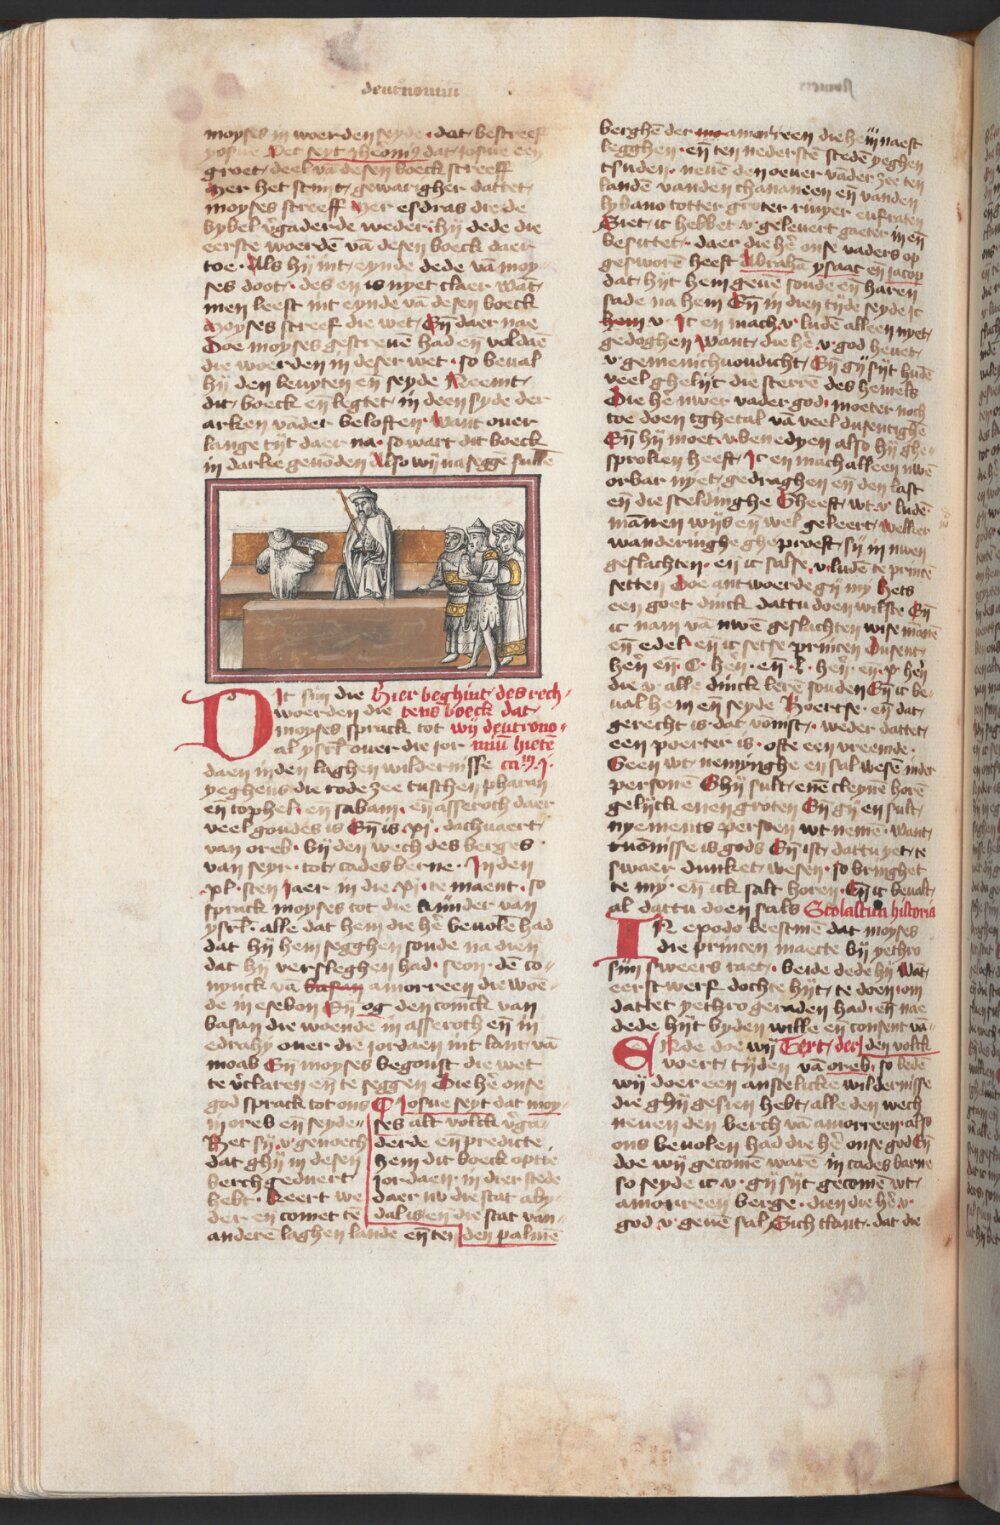 deut'nomiū
moyses in woerden seyde · dat bestreeff
yosue Het seyt iheōm9 dat iosue een
groet deel vā desen boeck screeff
Mer het scint gewarigher dattet
moyses screeff Mer esdras die de
bybel v'gaderde weder · hij dede die
eerste woerdē vā desen boeck daer
toe · Als hij int eynde dede vā moy
ses doot · des en is nyet claer Wāt
men leest int eynde vā desen boeck
Moyses screef die wet · Eñ daer nae
Doe moyses gescreuē had en voldaē
die woerden in deser wet · so beual
hij den leuyten eñ seyde Neemt
dit boeck eñ legtet in deen syde der
arken vāder beloften Want ouer
lange tijt daer na · so wart dit boeck
in darke geuōden Also wij na seggē sullē
DIt sijn die
woerden die
moyses sprack tot
al ysrl' ouer die ior
Hier beghint des rech
tens boeck dat
wij deutrono
miū hietē
daen inden laghen wildernisse ca9 · j ·
yeghens die rode zee tusschen pharan
en tophel · en labam · eñ asseroth daer
veel goudes is Eñ is · xi · dachuaert
van oreb · bij den wech des berges
van seyr · tot cades berne · In den
· xl · sten Jaer in die · xi · te maent · so
sprack moyses tot die kinder van
ysrl' · alle dat hem die hē beuolē had
dat hij hem segghen soude na dien
dat hij versleghen had · seon · dē co
nynck vā basan amorreen die woe
de in esebon Eñ og den coninck van
basan die woende in asseroth eñ in
edrahy ouer die jordaen int lant vā
moab Eñ moyses begonst die wet
te v'claren eñ te seggen Die hē onse
god sprack tot ons
in oreb eñ seyde
Het sij v genoech
dat ghij in desen
berch geduert
hebt · Keert we
der en comet tē
anderē laghen landē eñ ten
¶ Iosue seyt dat moy
ses alt volck v'ga
derde eñ predicte
hem dit boeck optie
jordaen · in dier stede
daer nv die stat aby
dal is en die stat van
den palmē
berghē der amorreen die hē naest
legghen · eñ ten nederstē stedē yeghen
tsuden · neuē den oeuer vāder zee ten
landē vanden chananeen eñ vanden
lybano totter groter riuyer eufraten
Siet ic hebbet v geleuert gaeter in eñ
besittet · daer die hē onse vaders op
gesworē heeft Abrahā ysaac eñ jacop
dat hijt hem geuē soude eñ haren
sade na hem Eñ in dien tijde seyde ic
hem v · Ic en mach v ludē alleen nyet
gedoghen Want die hē v god heuet
v gemenichuoudicht Eñ gij sijt hudē
veel ghelijc die sterrē des hemels
Die hē uwer vader god · moeter noch
toe doen tghetal vā veel dusentighē
Eñ hij moet v benedyen also hij ghe
sproken heeft · Ic en mach alleen uwē
orbar nyet gedraghen eñ den last
eñ die sceldinghe Gheeft wt v ludē
mānen wijs eñ wel geleert welker
wanderinghe gheproeft sij in uwen
geslachten · en ic salse v ludē te princē
setten Doe antwoerde gij my Hets
een goet dinck dattu doen wilste Eñ
ic nam vā uwē geslachten wise mānē
eñ edel · en ic setse princen Dusent
hē'n eñ · C · hē'n · eñ · L · hē'n · eñ · x hē'n
die v alle dinck lerē souden Eñ ic be
ual hem eñ seyde Hoertse · eñ dat
gerecht is · dat vōnist · weder dattet
een poerter is · ofte een vreemde ·
Geen wt nemynghe en sal wesē inder
personē Ghij sult enē cleynē horē
gelijck enen groten Eñ gij en sult
nyements persoen wt nemē · Want
vuōnisse is gods Eñ ist dattu yet te
swaer duncket wesen · so bringhet
te my · eñ ick salt horen · Eñ ic beualt
al dattu doen sals Scolastica historia
IN epodo leestmē dat moyses
die princen maecte bij yethro
sijn sweers raet · beide dede hij Wāt
eerst werf dochte hijt te doen · om
dattet yethro geraden had · eñ nae
dede hijt byden wille eñ consent va
Eñde doe wij Text der den volck
voert tijden vā oreb · so lede
wij doer een anstelicke wildernisse
die ghij gesien hebt · alle den wech
neuen den berch vā amorreen also
ons beuolen had die hē onse god Eñ
doe wij gecomē warē in cades barne
so seyde ic v · gij sijt gecomē wt
amorreen berge · dien die hē v
god v geuē sal Sich tlant dat die